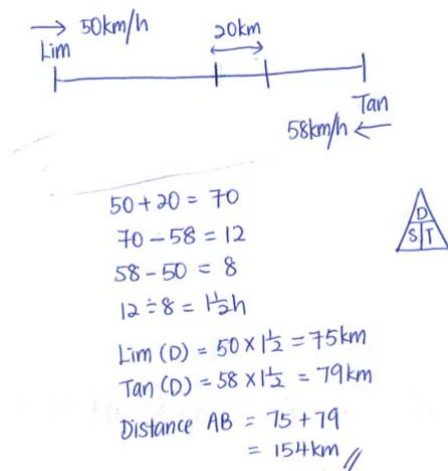 → 50km/h
Lim
20km
Tan
58km/h ←
50 + 20 = 70
70 - 58 = 12
58 - 50 = 8
12 ÷ 8 = 1½h
Lim (D) = 50 × 1½ = 75km
Tan (D) = 58 × 1½ = 79km
Distance AB = 75 + 79
= 154km //
D
S T